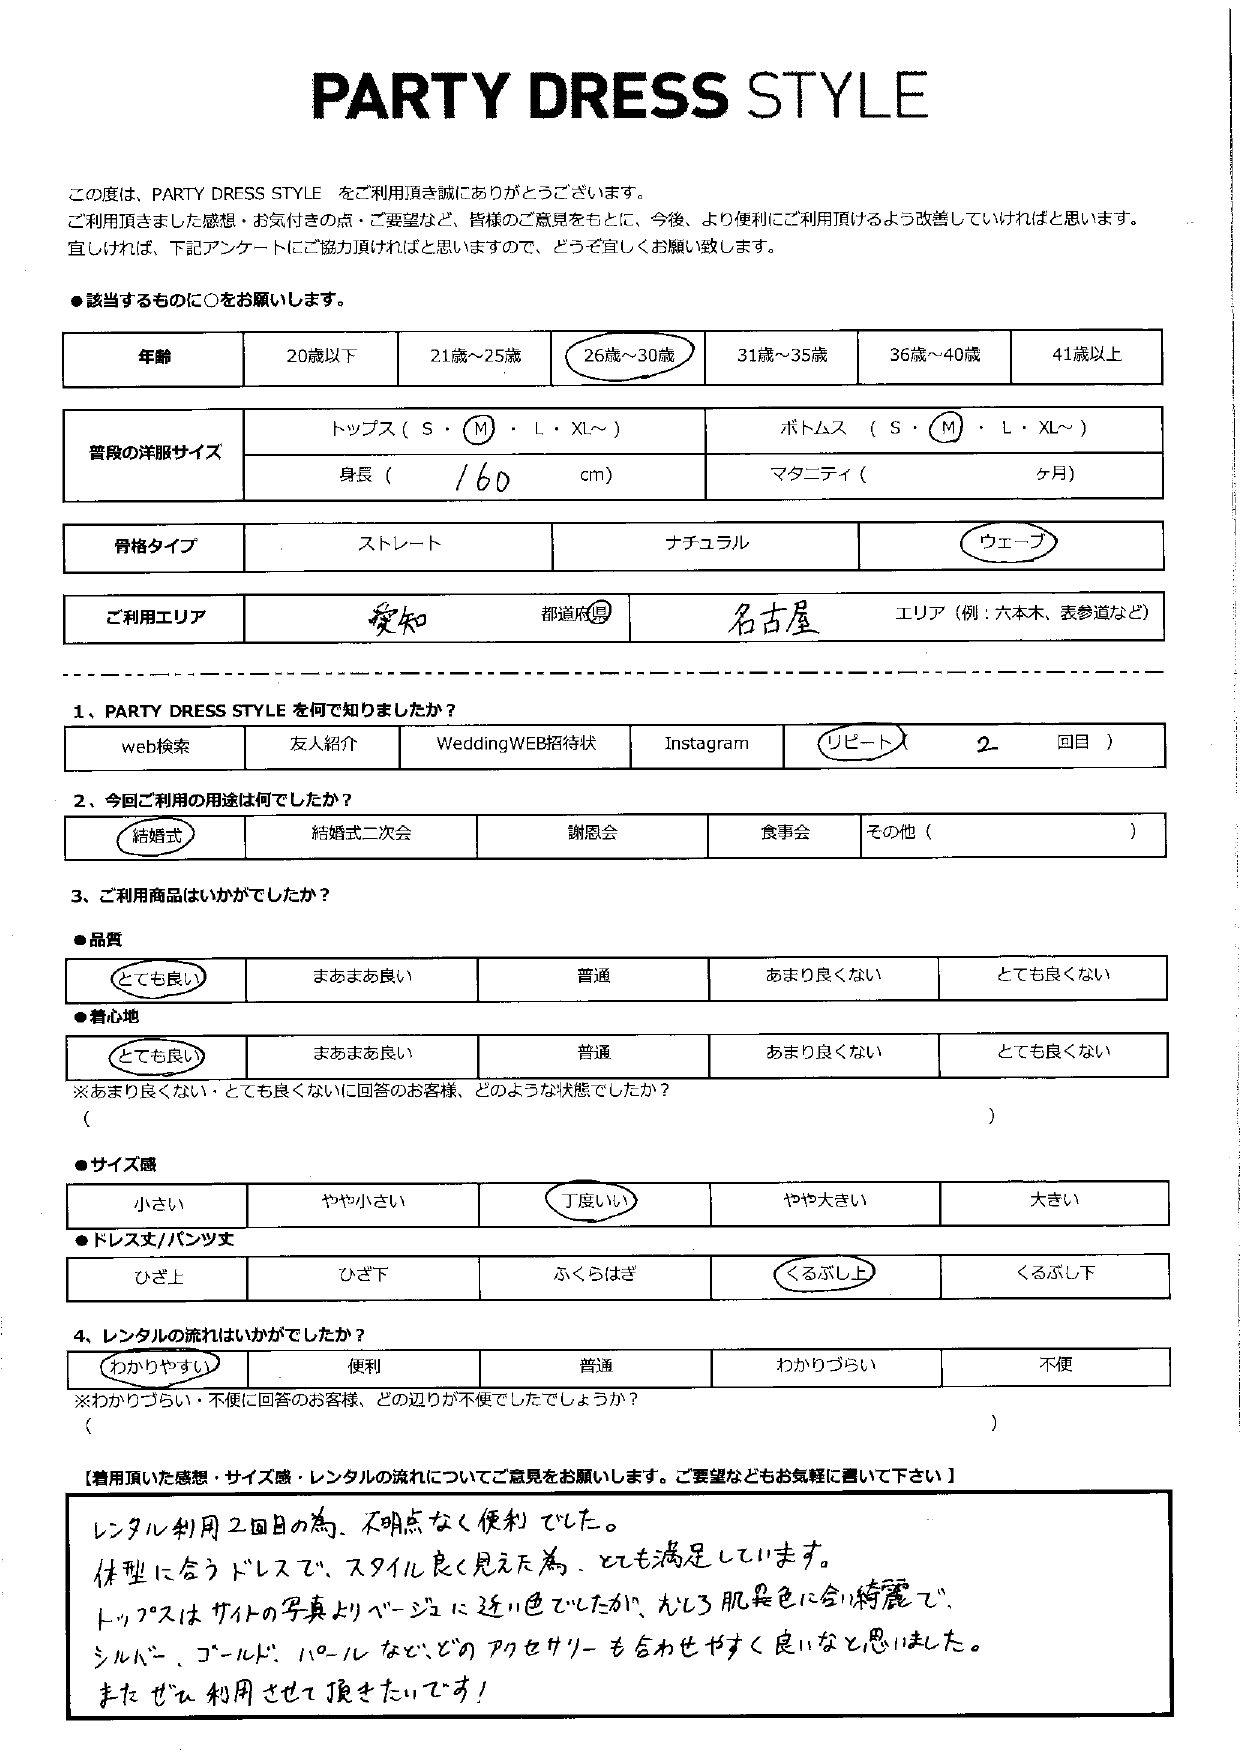 PARTY DRESS STYLE
この度は、PARTY DRESS STYLE をご利用頂き誠にありがとうございます。
ご利用頂きました感想・お気付きの点・ご要望など、皆様のご意見をもとに、今後、より便利にご利用頂けるよう改善していければと思います。
宜しければ、下記アンケートにご協力頂ければと思いますので、どうぞ宜しくお願い致します。
●該当するものに○をお願いします。
年齢 20歳以下 21歳～25歳 26歳～30歳 31歳～35歳 36歳～40歳 41歳以上
普段の洋服サイズ
トップス ( S ・ M ・ L ・ XL～ ) ボトムス ( S ・ M ・ L ・ XL～ )
身長 ( 160 cm) マタニティ ( ヶ月)
骨格タイプ ストレート ナチュラル ウェーブ
ご利用エリア 愛知 都道府県 名古屋 エリア（例：六本木、表参道など）
1、PARTY DRESS STYLE を何で知りましたか？
web検索 友人紹介 WeddingWEB招待状 Instagram リピート ( 2 回目 )
2、今回ご利用の用途は何でしたか？
結婚式 結婚式二次会 謝恩会 食事会 その他 ( )
3、ご利用商品はいかがでしたか？
●品質
とても良い まあまあ良い 普通 あまり良くない とても良くない
●着心地
とても良い まあまあ良い 普通 あまり良くない とても良くない
※あまり良くない・とても良くないに回答のお客様、どのような状態でしたか？
( )
●サイズ感
小さい やや小さい 丁度いい やや大きい 大きい
●ドレス丈/パンツ丈
ひざ上 ひざ下 ふくらはぎ くるぶし上 くるぶし下
4、レンタルの流れはいかがでしたか？
わかりやすい 便利 普通 わかりづらい 不便
※わかりづらい・不便に回答のお客様、どの辺りが不便でしたでしょうか？
( )
【着用頂いた感想・サイズ感・レンタルの流れについてご意見をお願いします。ご要望などもお気軽に書いて下さい 】
レンタル利用2回目の為、不明点なく便利でした。
体型に合うドレスで、スタイル良く見えた為、とても満足しています。
トップスはサイトの写真よりベージュに近い色でしたが、むしろ肌色に合い綺麗で、
シルバー、ゴールド、パールなど、どのアクセサリーも合わせやすく良いなと思いました。
またぜひ利用させて頂きたいです！